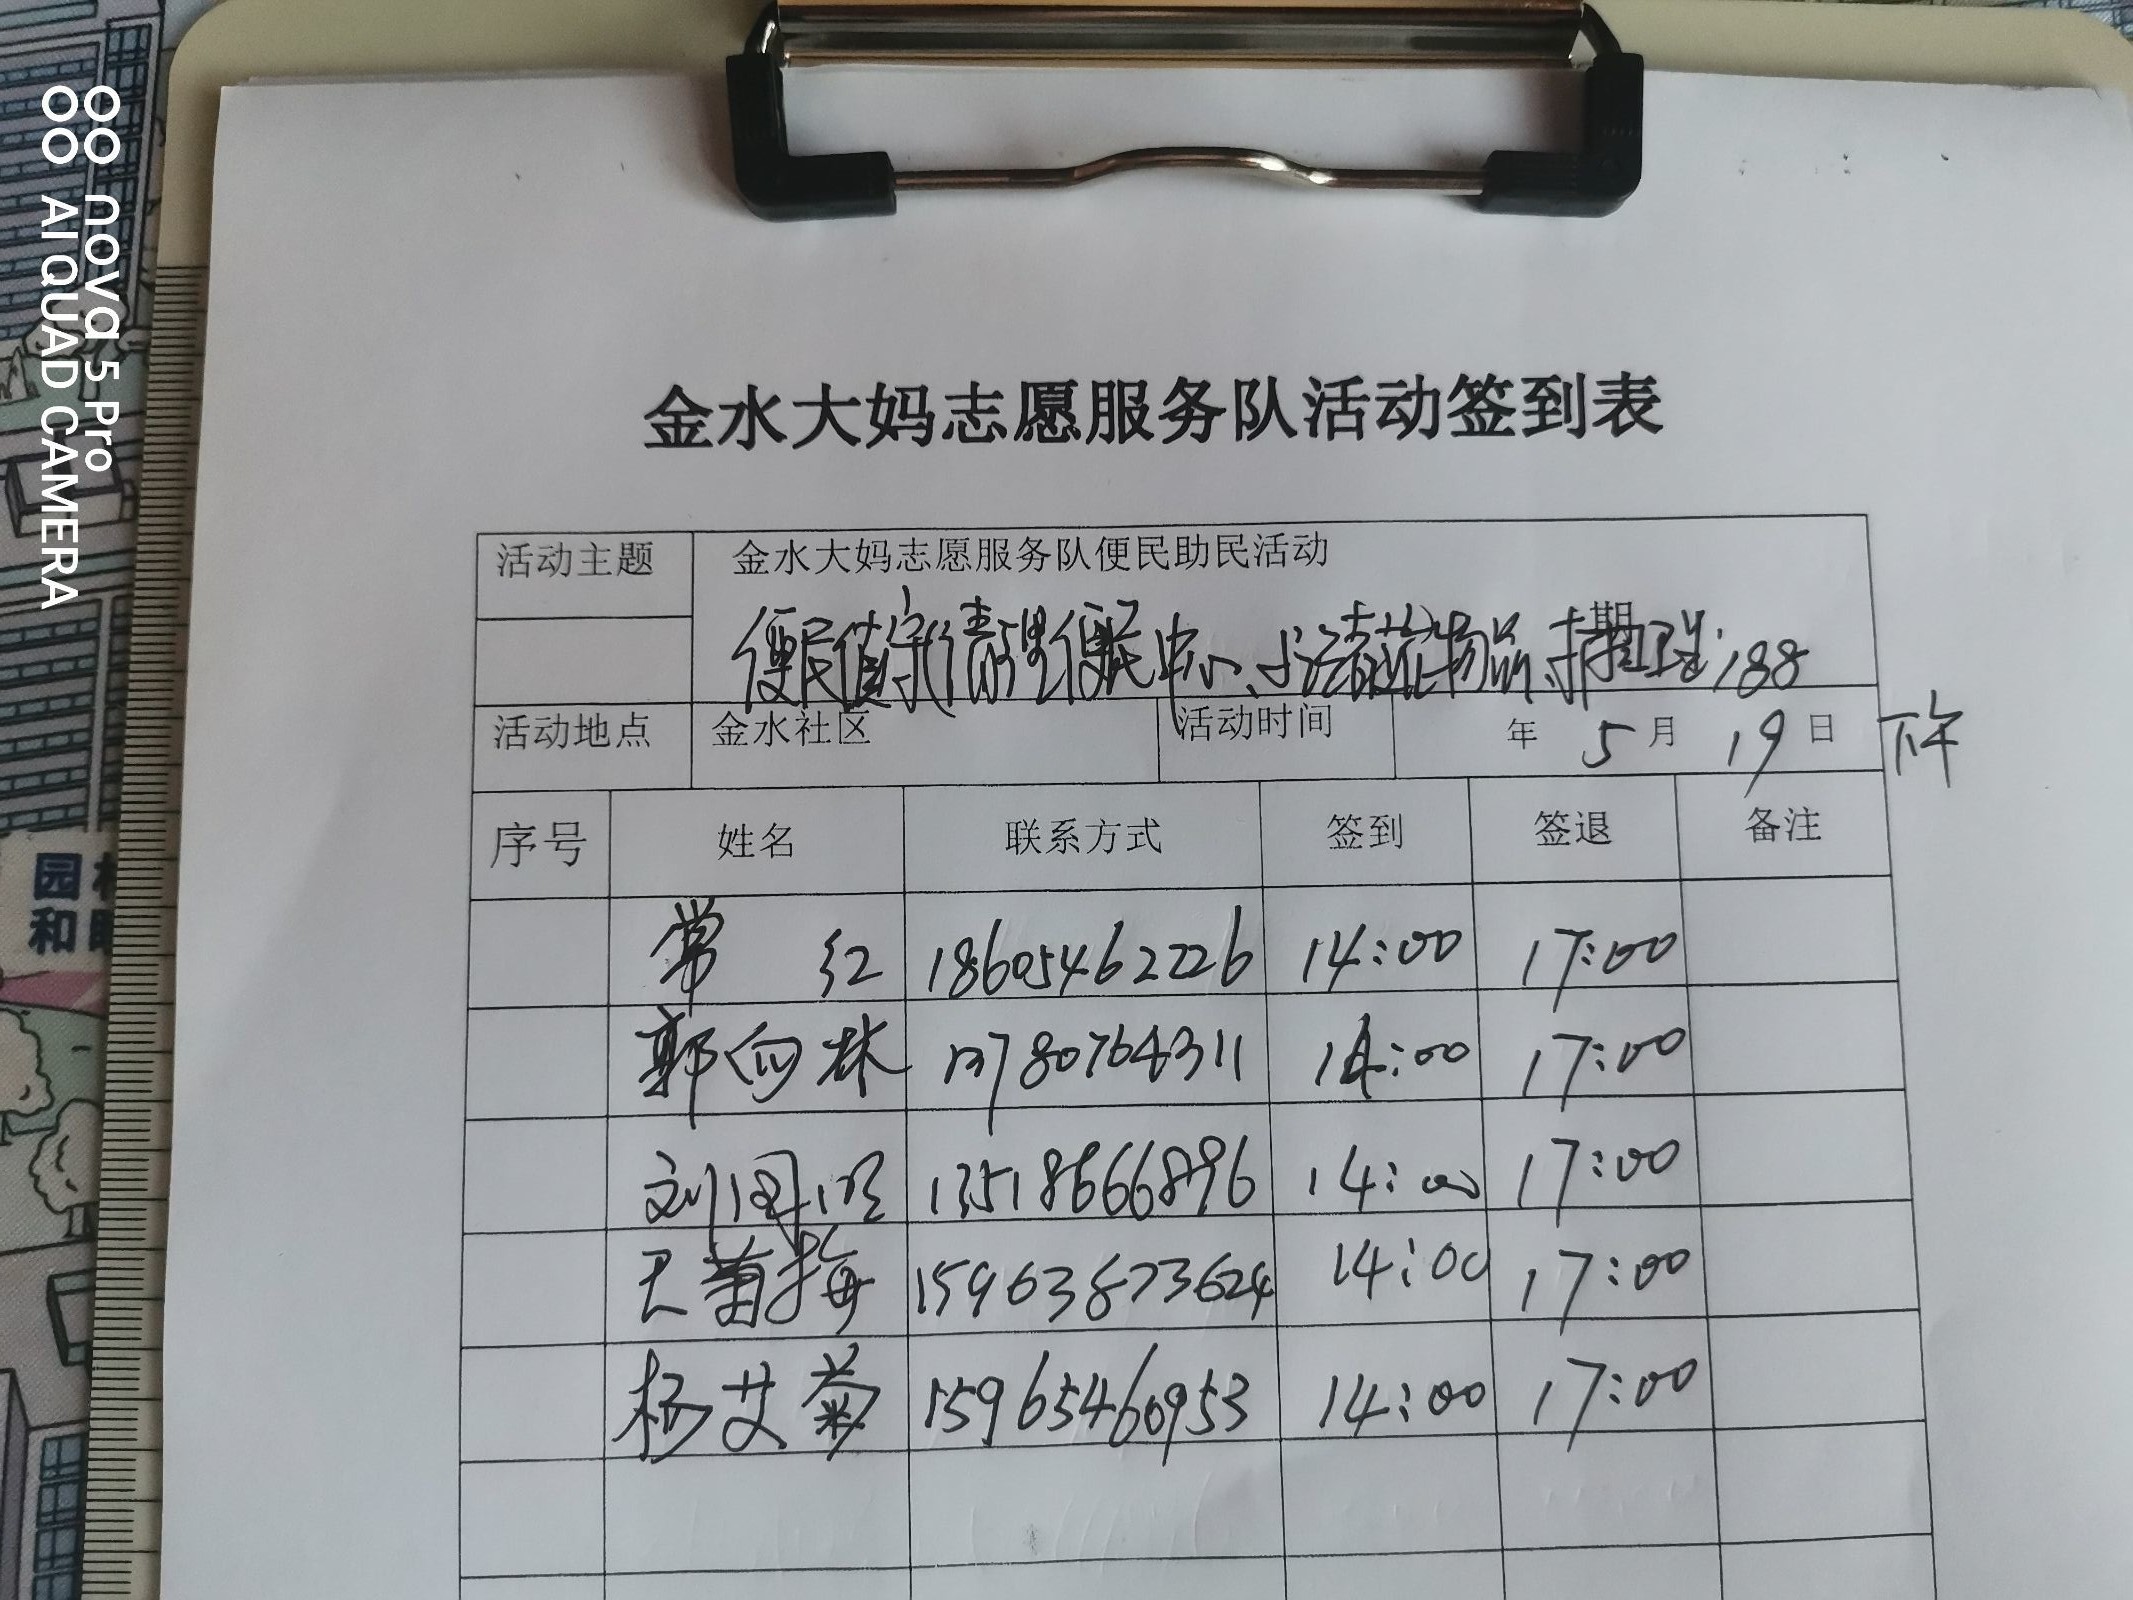 金水大妈志愿服务队活动签到表
活动主题 金水大妈志愿服务队便民助民活动
便民值守、清理便民中心、
活动地点 金水社区 活动时间 年 5 月 19 日 下午
序号 姓名 联系方式 签到 签退 备注
常 红 18605462226 14:00 17:00
郭向林 13780764311 14:00 17:00
刘国 13518666896 14:00 17:00
梅 15963873624 14:00 17:00
杨艾菊 15965460953 14:00 17:00
nova 5 Pro
AI QUAD CAMERA
园
和